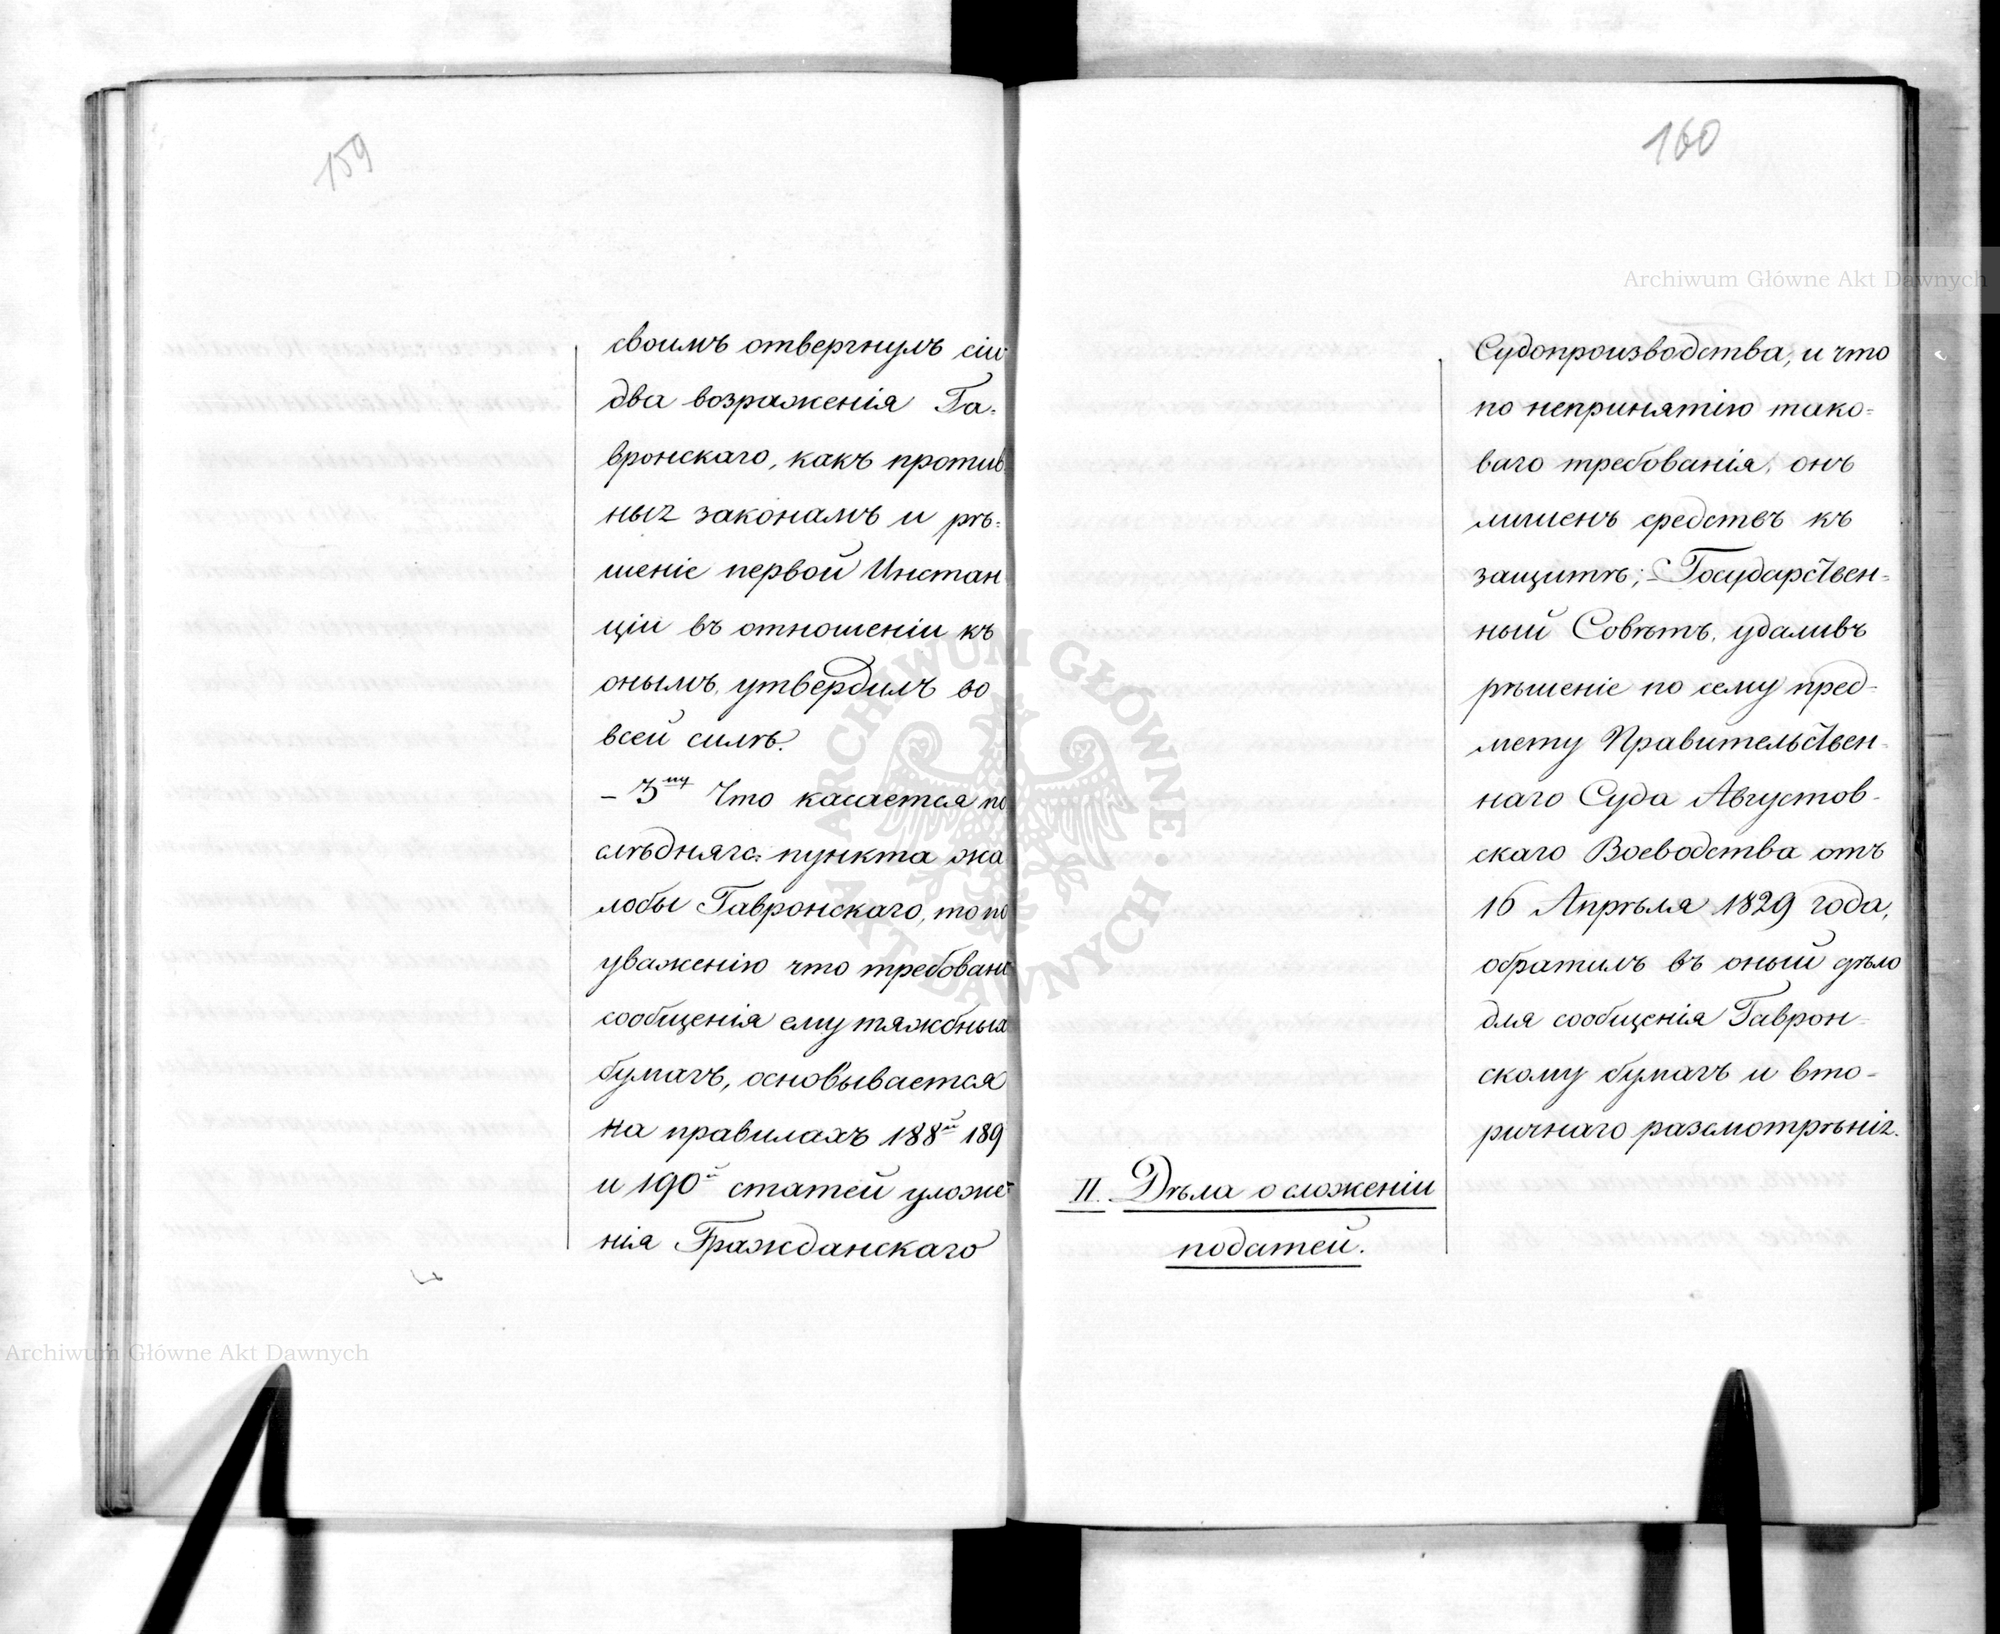 159
своимъ отвергнулъ сіи
два возраженія Га-
вронскаго, какъ против-
ныя законамъ и рѣ-
шеніе первой Инстан
ціи въ отношеніи къ
онымъ, утвердилъ во
всей силѣ.
– 3му Что касается по
слѣдняго пункта жа
лобы Гавронскаго, то по
уваженію что требованіе
сообщенія ему тяжбныхъ
бумагъ, основывается
на правилахъ 188й 189
и 190й статей уложе-
нія Гражданскаго
160
Судопроизводства, и что
по непринятію тако-
ваго требованія, онъ
лишенъ средствъ къ
защитѣ; – Государствен-
ный Совѣтъ, удаливъ
рѣшеніе по сему пред-
мету Правительствен-
наго Суда Августов-
скаго Воеводства отъ
16 Апрѣля 1829 года,
обратилъ въ оный дѣло
для сообщенія Гаврон-
скому бумагъ и вто-
ричнаго разсмотрѣнія.
II. Дѣла о сложеніи
податей.
Archiwum Główne Akt Dawnych
Archiwum Główne Akt Dawnych
ARCHIWUM GŁÓWNE · AKT DAWNYCH ·